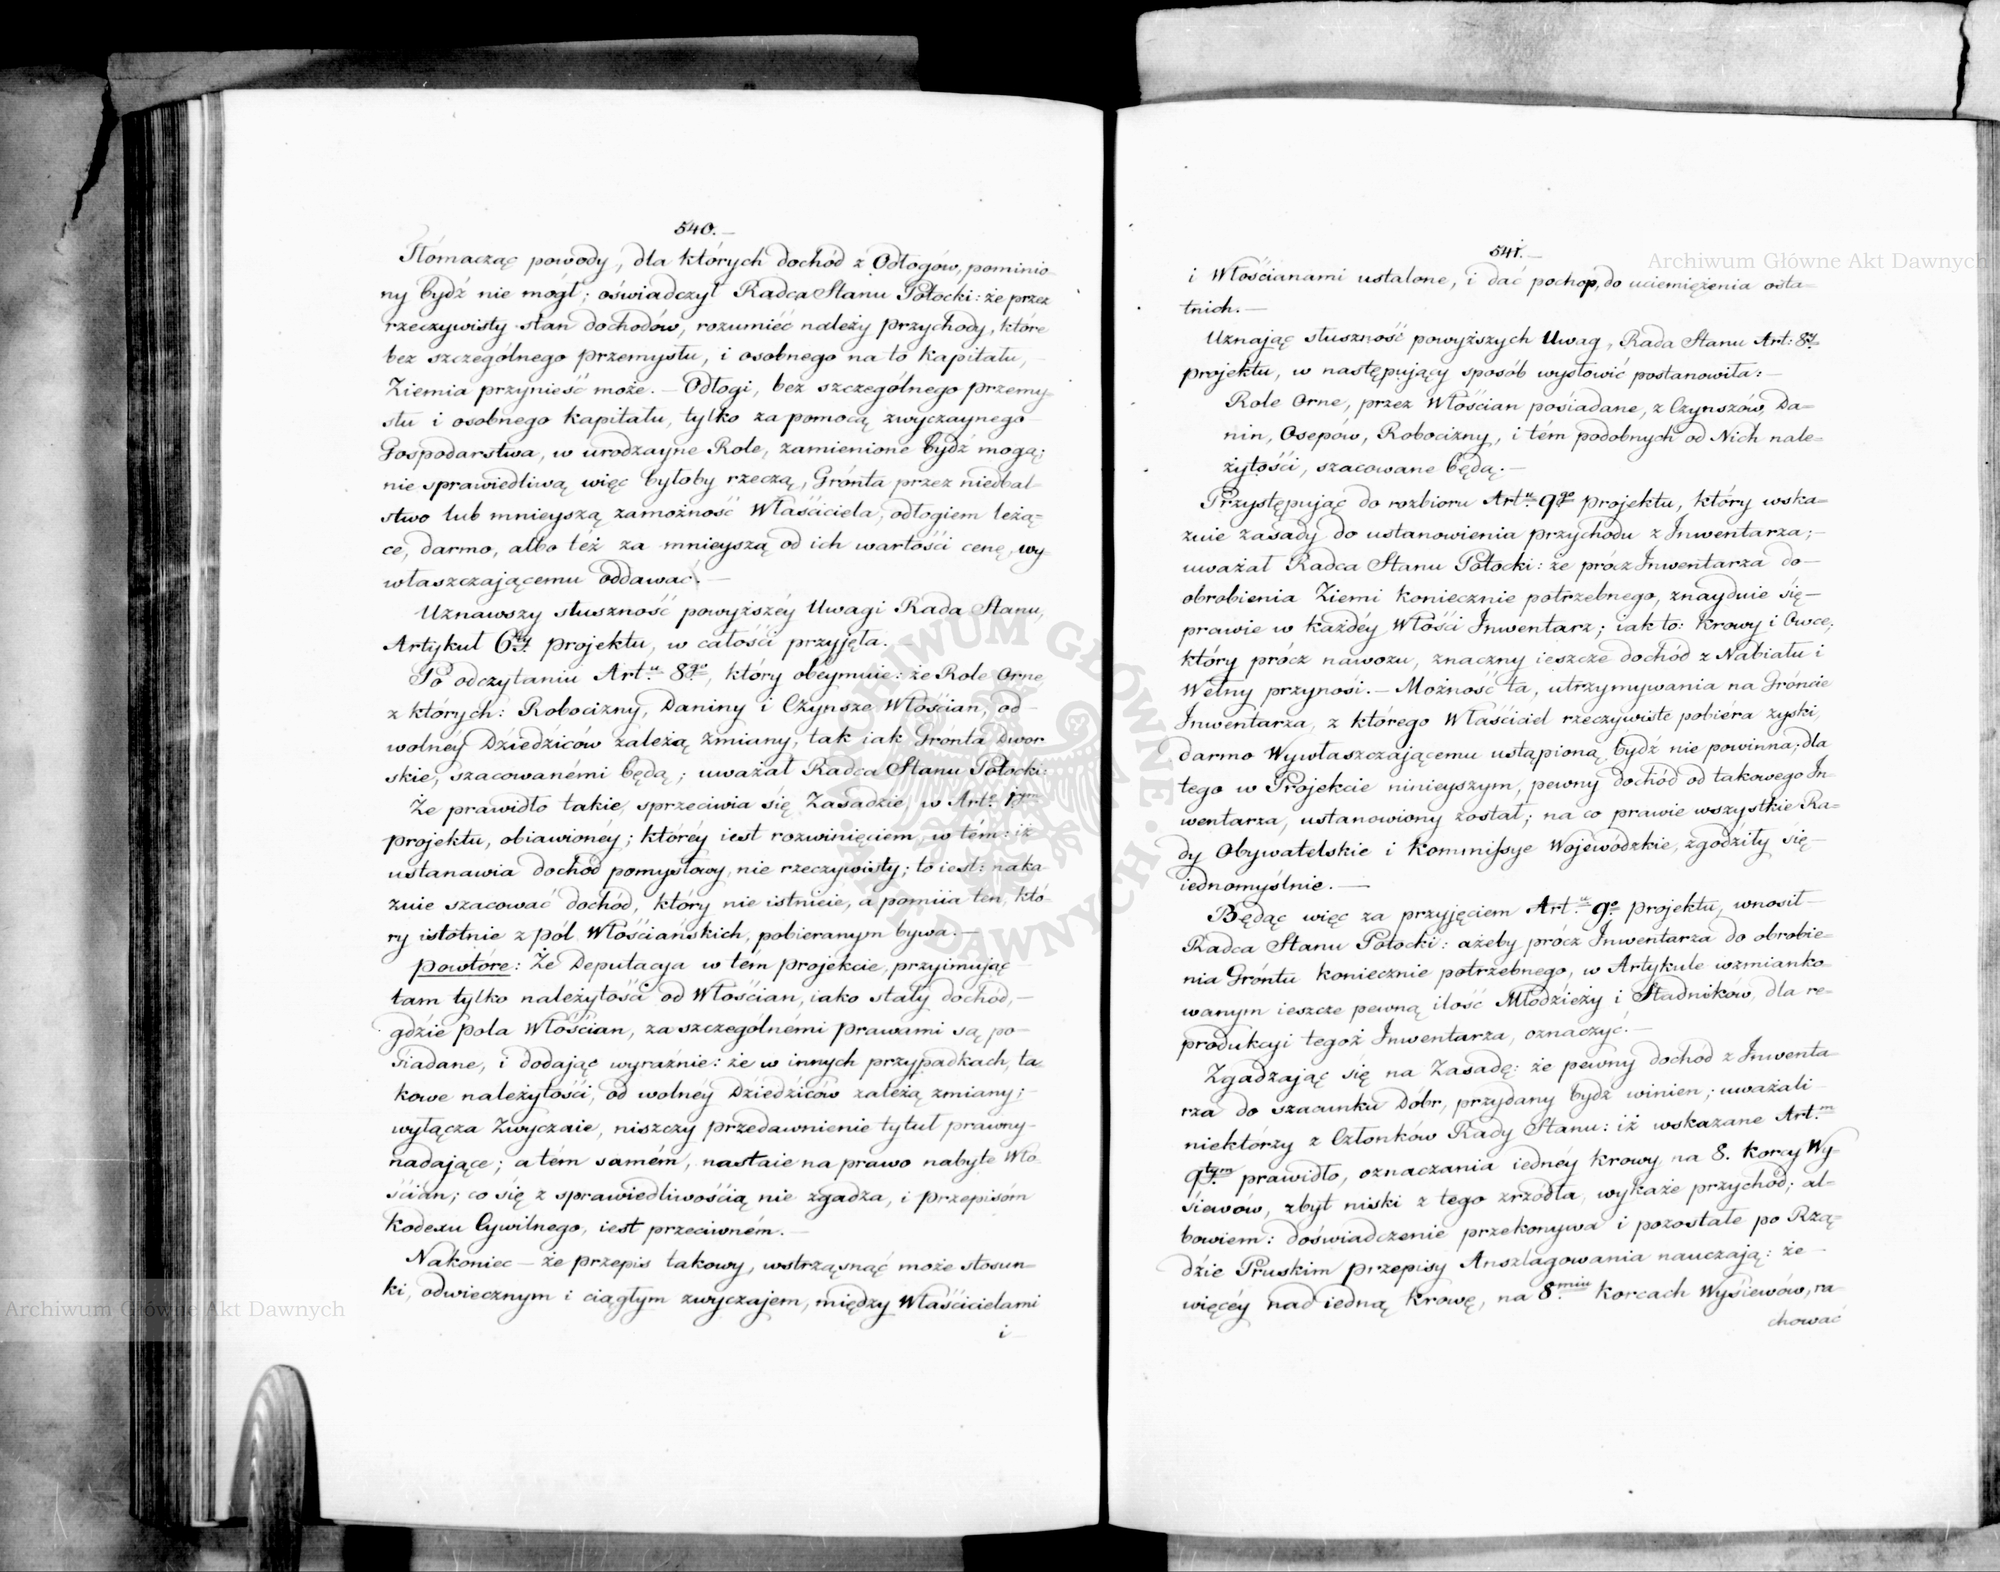 540.—
Tłómacząc powody, dla których dochód z Odłogów, pominio-
ny bydź nie mógł; oświadczył Radca Stanu Potocki: że przez
rzeczywisty stan dochodów, rozumieć należy przychody, które
bez szczególnego przemysłu, i osobnego na to kapitału, —
Ziemia przynieść może. — Odłogi, bez szczególnego przemy-
słu i osobnego kapitału, tylko za pomocą zwyczaynego
Gospodarstwa, w urodzayne Role, zamienione bydź mogą;
nie sprawiedliwą więc byłoby rzeczą, Grónta przez niedbal-
stwo lub mnieyszą zamożność Właściciela, odłogiem leżą-
ce, darmo, albo też za mnieyszą od ich wartości cenę, wy-
właszczającemu oddawać. —
Uznawszy słuszność powyższéy Uwagi Rada Stanu,
Artykuł 6ty projektu, w całości przyjęła.
Po odczytaniu Art.u 8go, który obeymuie: że Role Orne
z których: Robocizny, Daniny i Czynsze Włościan, od —
wolnéy Dziedziców zależą zmiany, tak iak Gronta Dwor
skie, szacowanémi będą; uważał Radca Stanu Potocki:
Że prawidło takie, sprzeciwia się Zasadzie, w Art.e 1ym
projektu, obiawionéy; któréy iest rozwinięciem, w tém: iż
ustanawia dochód pomysłowy, nie rzeczywisty; to iest: naka
zuie szacować dochód, który nie istnieie, a pomiia ten, któ-
ry istotnie z pól Włościańskich, pobieranym bywa. —
powtóre: Że Deputacya w tém projekcie, przyimując —
tam tylko należytości od Włościan, iako stały dochód, —
gdzie pola Włościan, za szczególnémi prawami są po —
siadane, i dodając wyraźnie: że w innych przypadkach, ta-
kowe należytości, od wolnéy Dziedziców zależą zmiany; —
wyłącza Zwyczaie, niszczy przedawnienie tytuł prawny —
nadające; a tém samém, nastaie na prawo nabyte Wło-
ścian; co się z sprawiedliwością nie zgadza, i przepisóm
Kodexu Cywilnego, iest przeciwném. —
Nakoniec — że przepis takowy, wstrząsnąć może stosun-
ki, odwiecznym i ciągłym zwyczajem, między Właścicielami
i —
541.—
i Włościanami ustalone, i dać pochop, do uciemiężenia osta-
tnich. —
Uznając słuszność powyższych Uwag, Rada Stanu Art: 8y
projektu, w następujący sposób wysłowić postanowiła: —
Role Orne, przez Włościan posiadane, z Czynszów, Da-
nin, Osepów, Robocizny, i tém podobnych od Nich nale-
żytości, szacowane będą. —
Przystępując do rozbioru Art.u 9go projektu, który wska-
zuie zasady do ustanowienia przychodu z Inwentarza; —
uważał Radca Stanu Potocki: że prócz Inwentarza do —
obrobienia Ziemi koniecznie potrzebnego, znayduie się —
prawie w każdéy Włości Inwentarz; iak to: Krowy i Owce;
który prócz nawozu, znaczny ieszcze dochód z Nabiału i
Wełny przynosi. — Możność ta, utrzymywania na Gróncie
Inwentarza, z którego Właściciel rzeczywiste pobiéra zyski,
darmo Wywłaszczającemu ustąpioną, bydź nie powinna; dla
tego w Projekcie ninieyszym, pewny dochód od takowego In-
wentarza, ustanowiony został; na co prawie wszystkie Ra-
dy Obywatelskie i Kommissye Wojewódzkie, zgodziły się —
iednomyślnie. —
Będąc więc za przyjęciem Art.u 9o projektu, wnosił —
Radca Stanu Potocki: ażeby prócz Inwentarza do obrobie-
nia Gróntu koniecznie potrzebnego, w Artykule wzmianko
wanym ieszcze pewną ilość Młodzieży i Stadników, dla re-
produkcyi tegoż Inwentarza, oznaczyć. —
Zgadzając się na Zasadę: że pewny dochód z Inwenta
rza do szacunku Dóbr, przydany bydź winien; uważali —
niektórzy z Członków Rady Stanu: iż wskazane Art.m
9tym prawidło, oznaczania iednéy Krowy na 8. korcy Wy-
siewów, zbyt niski z tego zrzódła, wykaże przychód; al-
bowiem: doświadczenie przekonywa i pozostałe po Rzą-
dzie Pruskim przepisy Anszlagowania nauczają: że —
więcéy nad iedną Krowę, na 8.miu korcach Wysiewów, ra
chować
Archiwum Główne Akt Dawnych
Archiwum Główne Akt Dawnych
ARCHIWUM GŁÓWNE · AKT DAWNYCH ·